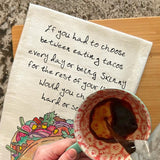 If you had to choose
between eating tacos
every day or being skinny
for the rest of your
Would you ch
hard or s